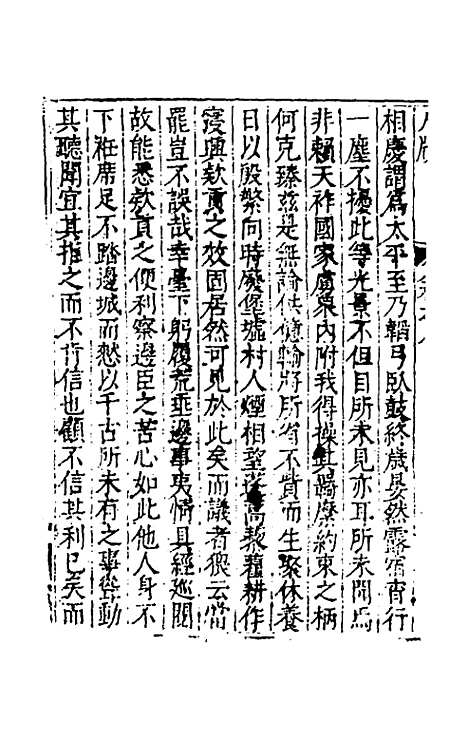 相慶謂爲太平至乃韜弓臥鼓終歲晏然露宿宵行
一塵不擾此等光景不但目所未見亦耳所未聞焉
非賴天祚國家虜衆內附我得操其羈縻約束之柄
何克臻玆是無論供億輸將所省不貲而生聚休養
日以殷繁向時廢堡墟村人煙相望登高藝種耕作
寖興欵貢之效固居然可見於此矣而議者猥云當
罷豈不誤哉幸臺下躬履荒亟邊事夷情具經巡閱
故能悉欵貢之便利察邊臣之苦心如此他人身不
下袵席足不踏邊城而愁以千古所未有之事聳動
其聽聞宜其拒之而不肯信也顧不信其利已矣而